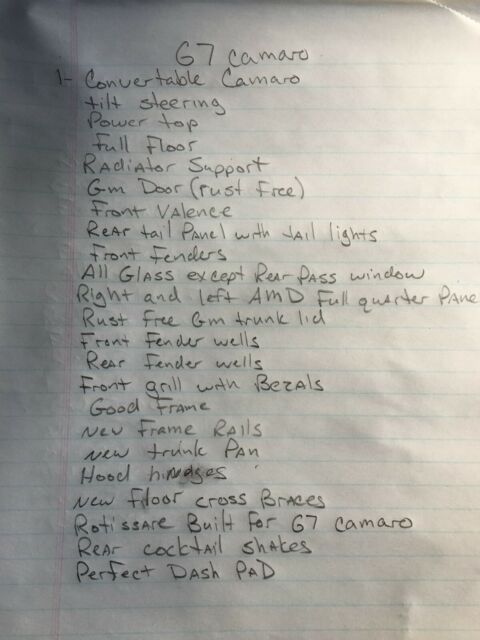 67 camaro
1- Convertable Camaro
tilt steering
Power top
full Floor
RADiAtor Support
Gm Door (rust free)
Front VAlence
ReAr tail PAnel with tail lights
Front Fenders
All GlAss except ReAr PAss window
Right and left AMD Full quarter PAne
Rust Free Gm trunk lid
Front Fender wells
ReAr Fender wells
Front grill with BezAls
Good FrAme
New FrAme RAils
New trunk PAn
Hood hindges
New floor cross BrAces
RotissAre Built For 67 camaro
ReAr cocktail shAkes
Perfect DAsh PAD